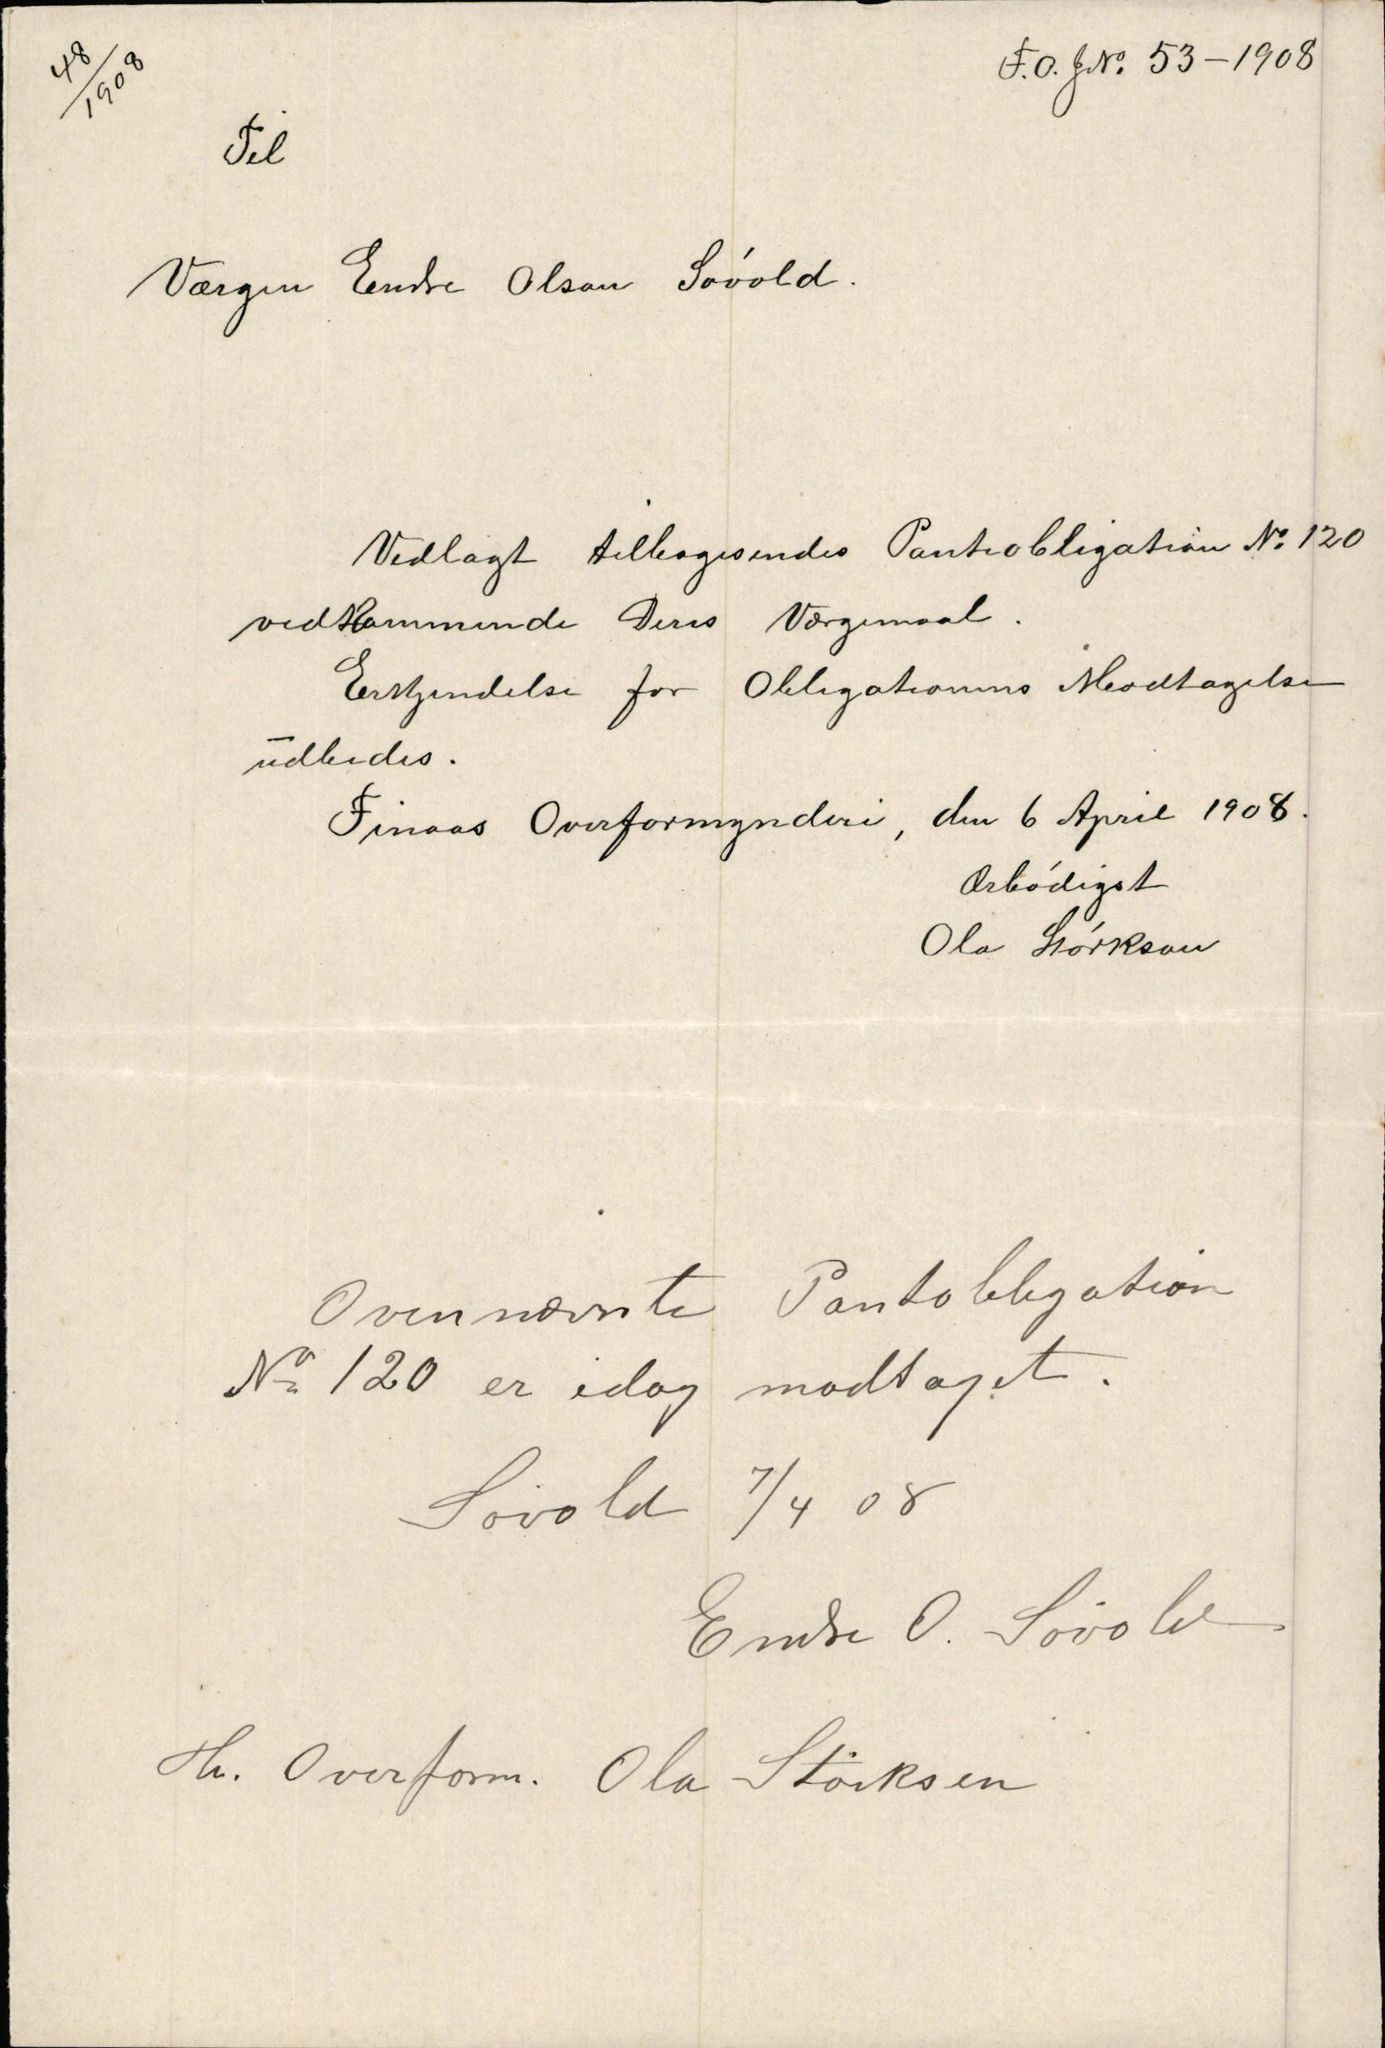 48/1908
F.O. J№. 53–1908
Til
Værgen Endre Olson Sóvold.
Vedlagt tilbagesendes Panteobligation №. 120
vedkommende Deres Værgemaal.
Erkjendelse for Obligationens Modtagelse
udbedes.
Finaas Overformynderi, den 6 April 1908.
Ærbódigst
Ola Stórkson
Ovennævnte Pantobligation
№ 120 er idag modtaget.
Sövold 7/4 08
Endre O. Sövold
Hr. Overform. Ola Störksen